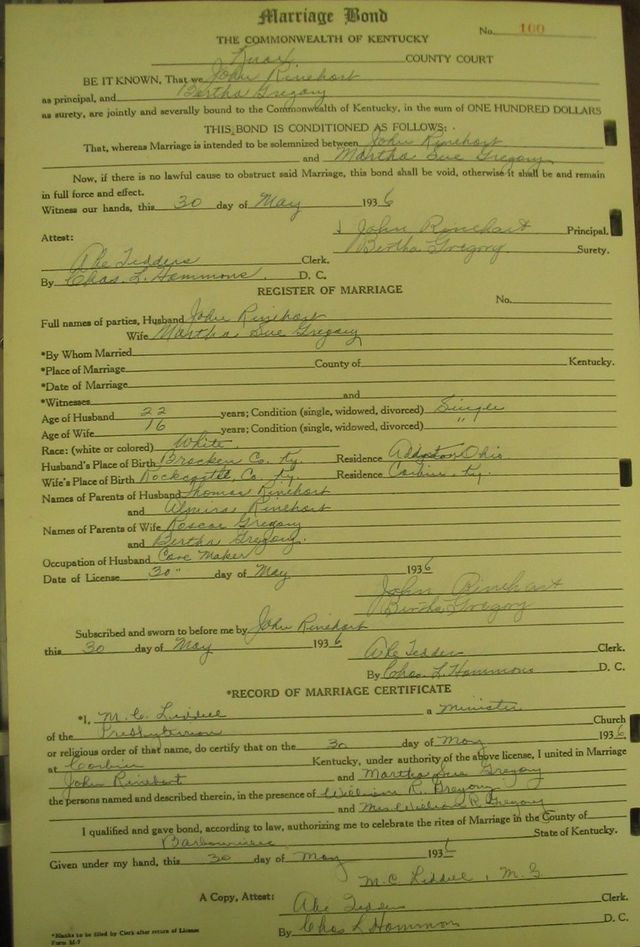 Marriage Bond
No. 100
THE COMMONWEALTH OF KENTUCKY
Knox COUNTY COURT
BE IT KNOWN, That we John Rinehart
as principal, and Bertha Gregory
as surety, are jointly and severally bound to the Commonwealth of Kentucky, in the sum of ONE HUNDRED DOLLARS
THIS BOND IS CONDITIONED AS FOLLOWS:
That, whereas Marriage is intended to be solemnized between John Rinehart
and Martha Sue Gregory
Now, if there is no lawful cause to obstruct said Marriage, this bond shall be void, otherwise it shall be and remain
in full force and effect.
Witness our hands, this 30 day of May 1936
John Rinehart Principal.
Attest: Bertha Gregory Surety.
Abe Tedders Clerk.
By Chas. L. Hammons D. C.
REGISTER OF MARRIAGE
No.
Full names of parties, Husband John Rinehart
Wife Martha Sue Gregory
*By Whom Married
*Place of Marriage County of Kentucky.
*Date of Marriage
*Witnesses and
Age of Husband 22 years; Condition (single, widowed, divorced) Single
Age of Wife 16 years; Condition (single, widowed, divorced) "
Race: (white or colored) White
Husband's Place of Birth Bracken Co. Ky. Residence Addyston Ohio
Wife's Place of Birth Rockcastle, Co. Ky. Residence Corbin, Ky.
Names of Parents of Husband Thomas Rinehart
and Almira Rinehart
Names of Parents of Wife Roscoe Gregory
and Bertha Gregory.
Occupation of Husband Core Maker
Date of License 30" day of May 1936
John Rinehart
Bertha Gregory
Subscribed and sworn to before me by John Rinehart
this 30 day of May 1936
Abe Tedders Clerk.
By Chas. L. Hammons D. C.
*RECORD OF MARRIAGE CERTIFICATE
*I, M. C. Liddell a Minister
of the Presbyterian Church
or religious order of that name, do certify that on the 30 day of May 1936
at Corbin Kentucky, under authority of the above license, I united in Marriage
John Rinehart and Martha Sue Gregory
the persons named and described therein, in the presence of William R. Gregory
and Mrs. William R. Gregory
I qualified and gave bond, according to law, authorizing me to celebrate the rites of Marriage in the County of
Barbourville State of Kentucky.
Given under my hand, this 30 day of May 1936
M. C. Liddell, M. G
A Copy, Attest: Abe Tedders Clerk.
By Chas L Hammon D. C.
*Blanks to be filled by Clerk after return of License
Form M-7